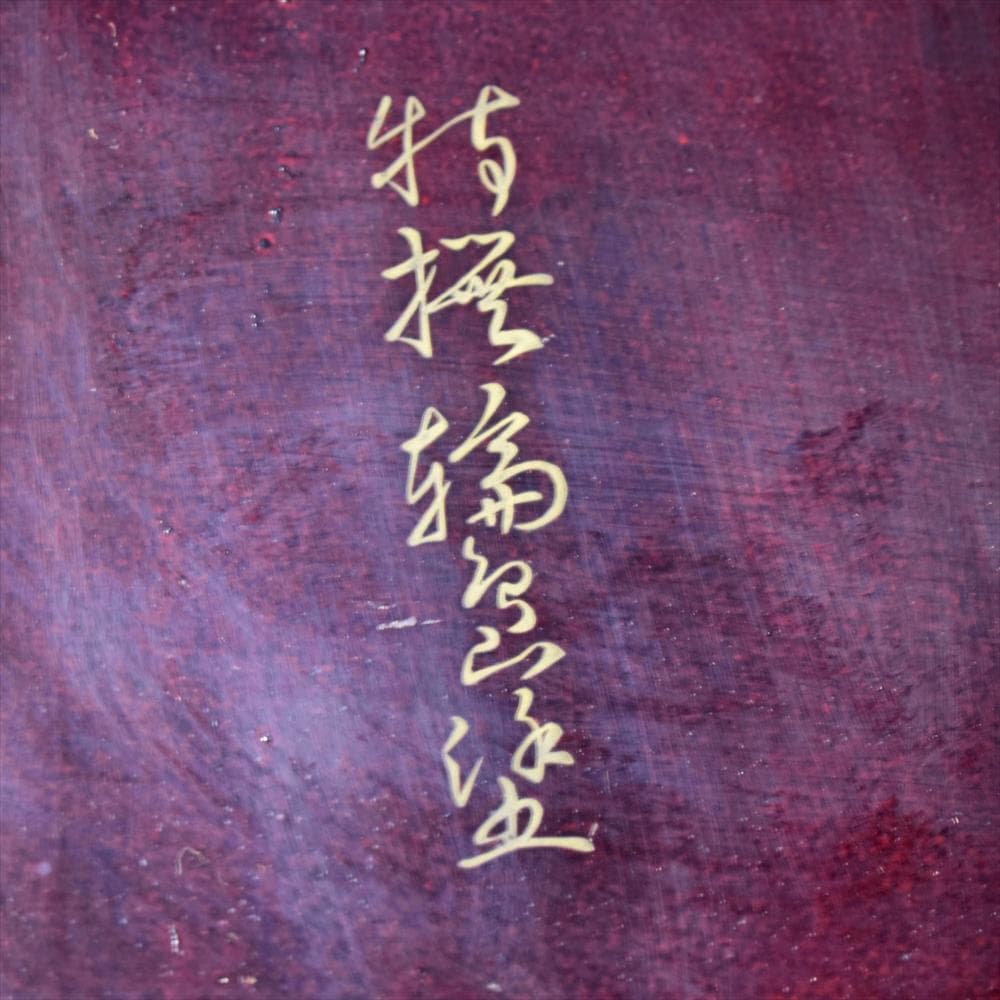 特撰輪島塗